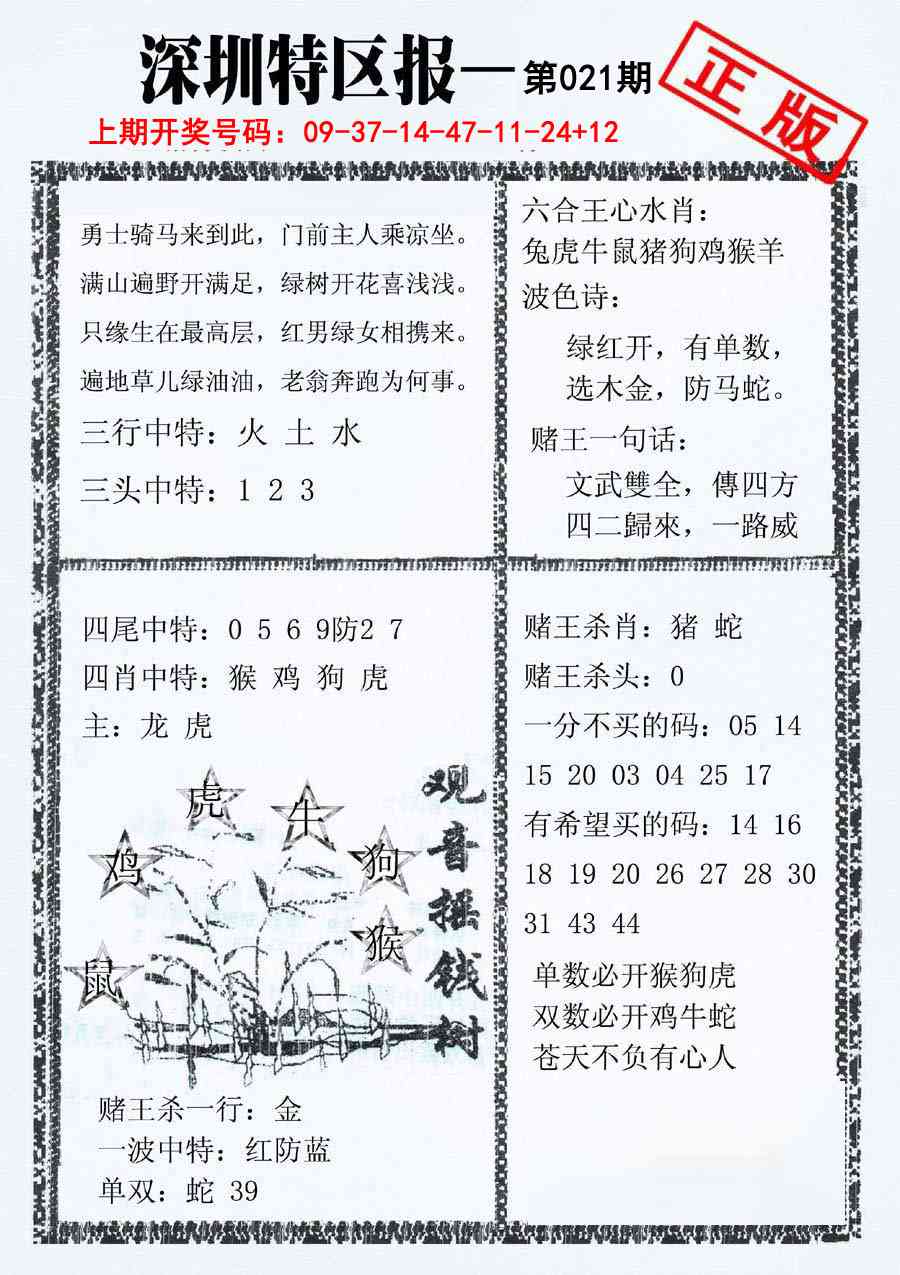 深圳特区报—第021期
正版
上期开奖号码：09-37-14-47-11-24+12
勇士骑马来到此，门前主人乘凉坐。
满山遍野开满足，绿树开花喜浅浅。
只缘生在最高层，红男绿女相携来。
遍地草儿绿油油，老翁奔跑为何事。
三行中特：火 土 水
三头中特：1 2 3
六合王心水肖：
兔虎牛鼠猪狗鸡猴羊
波色诗：
绿红开，有单数，
选木金，防马蛇。
赌王一句话：
文武雙全，傳四方
四二歸來，一路威
四尾中特：0 5 6 9防2 7
四肖中特：猴 鸡 狗 虎
主：龙 虎
虎
牛
鸡
狗
猴
鼠
观音摇钱树
赌王杀一行：金
一波中特：红防蓝
单双：蛇 39
赌王杀肖：猪 蛇
赌王杀头：0
一分不买的码：05 14
15 20 03 04 25 17
有希望买的码：14 16
18 19 20 26 27 28 30
31 43 44
单数必开猴狗虎
双数必开鸡牛蛇
苍天不负有心人